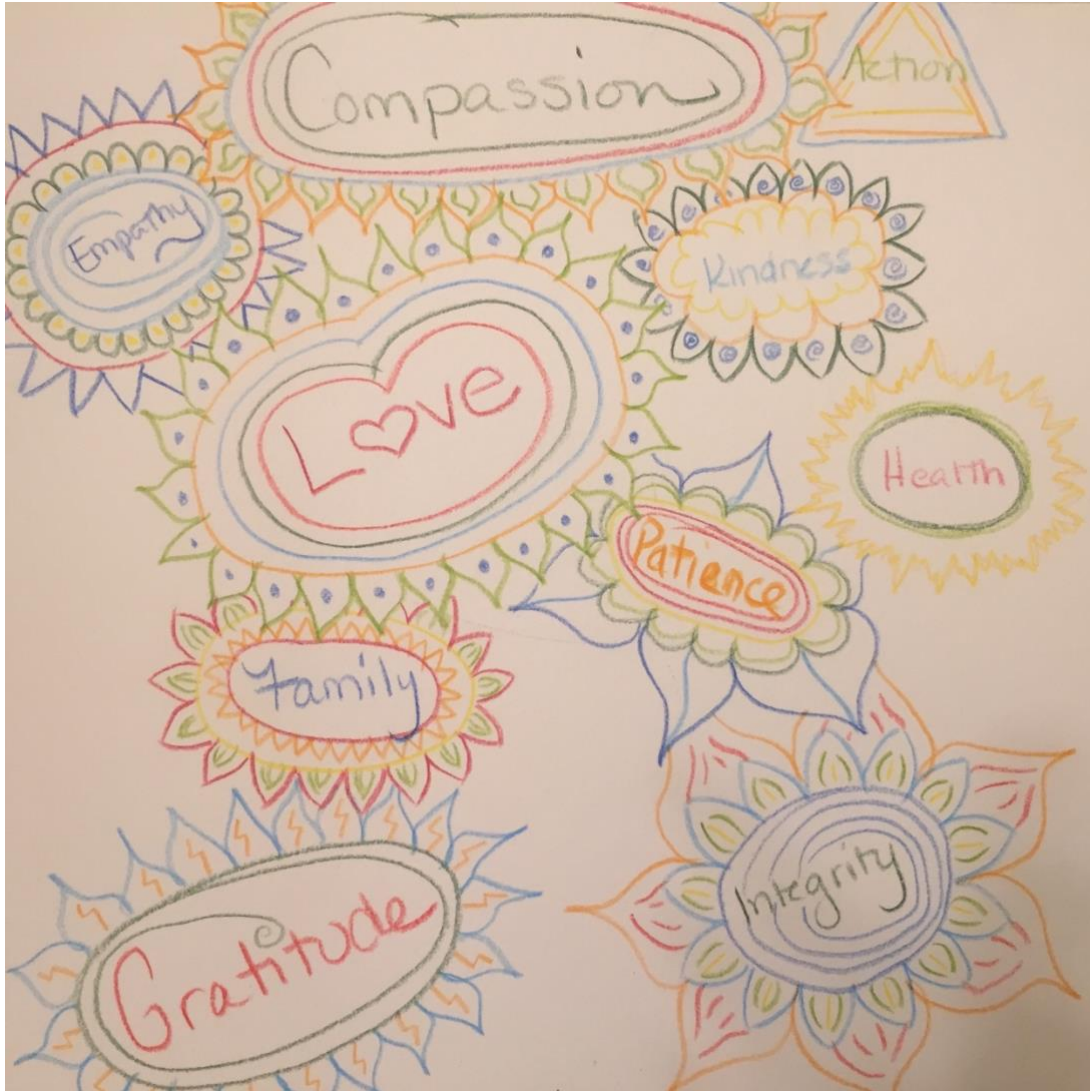 Compassion
Action
Empathy
Kindness
Love
Health
Patience
Family
Integrity
Gratitude